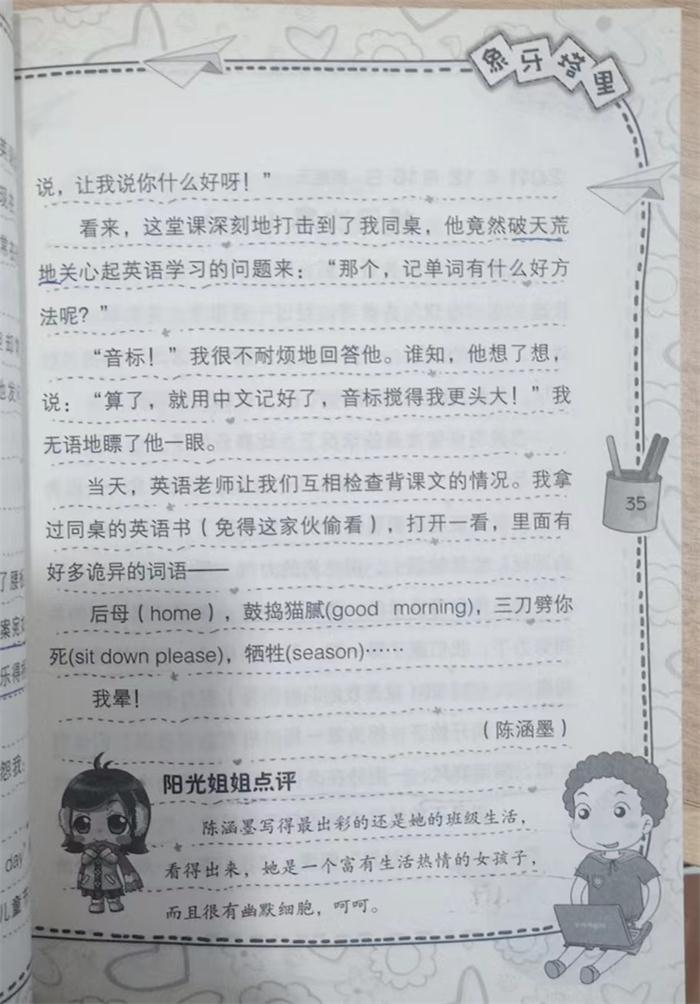 象牙塔里
说，让我说你什么好呀！”
看来，这堂课深刻地打击到了我同桌，他竟然破天荒
地关心起英语学习的问题来：“那个，记单词有什么好方
法呢？”
“音标！”我很不耐烦地回答他。谁知，他想了想，
说：“算了，就用中文记好了，音标搅得我更头大！”我
无语地瞟了他一眼。
当天，英语老师让我们互相检查背课文的情况。我拿
过同桌的英语书（免得这家伙偷看），打开一看，里面有
好多诡异的词语——
后母（home），鼓捣猫腻(good morning)，三刀劈你
死(sit down please)，牺牲(season)……
我晕！
（陈涵墨）
阳光姐姐点评
陈涵墨写得最出彩的还是她的班级生活，
看得出来，她是一个富有生活热情的女孩子，
而且很有幽默细胞，呵呵。
35
day
儿童